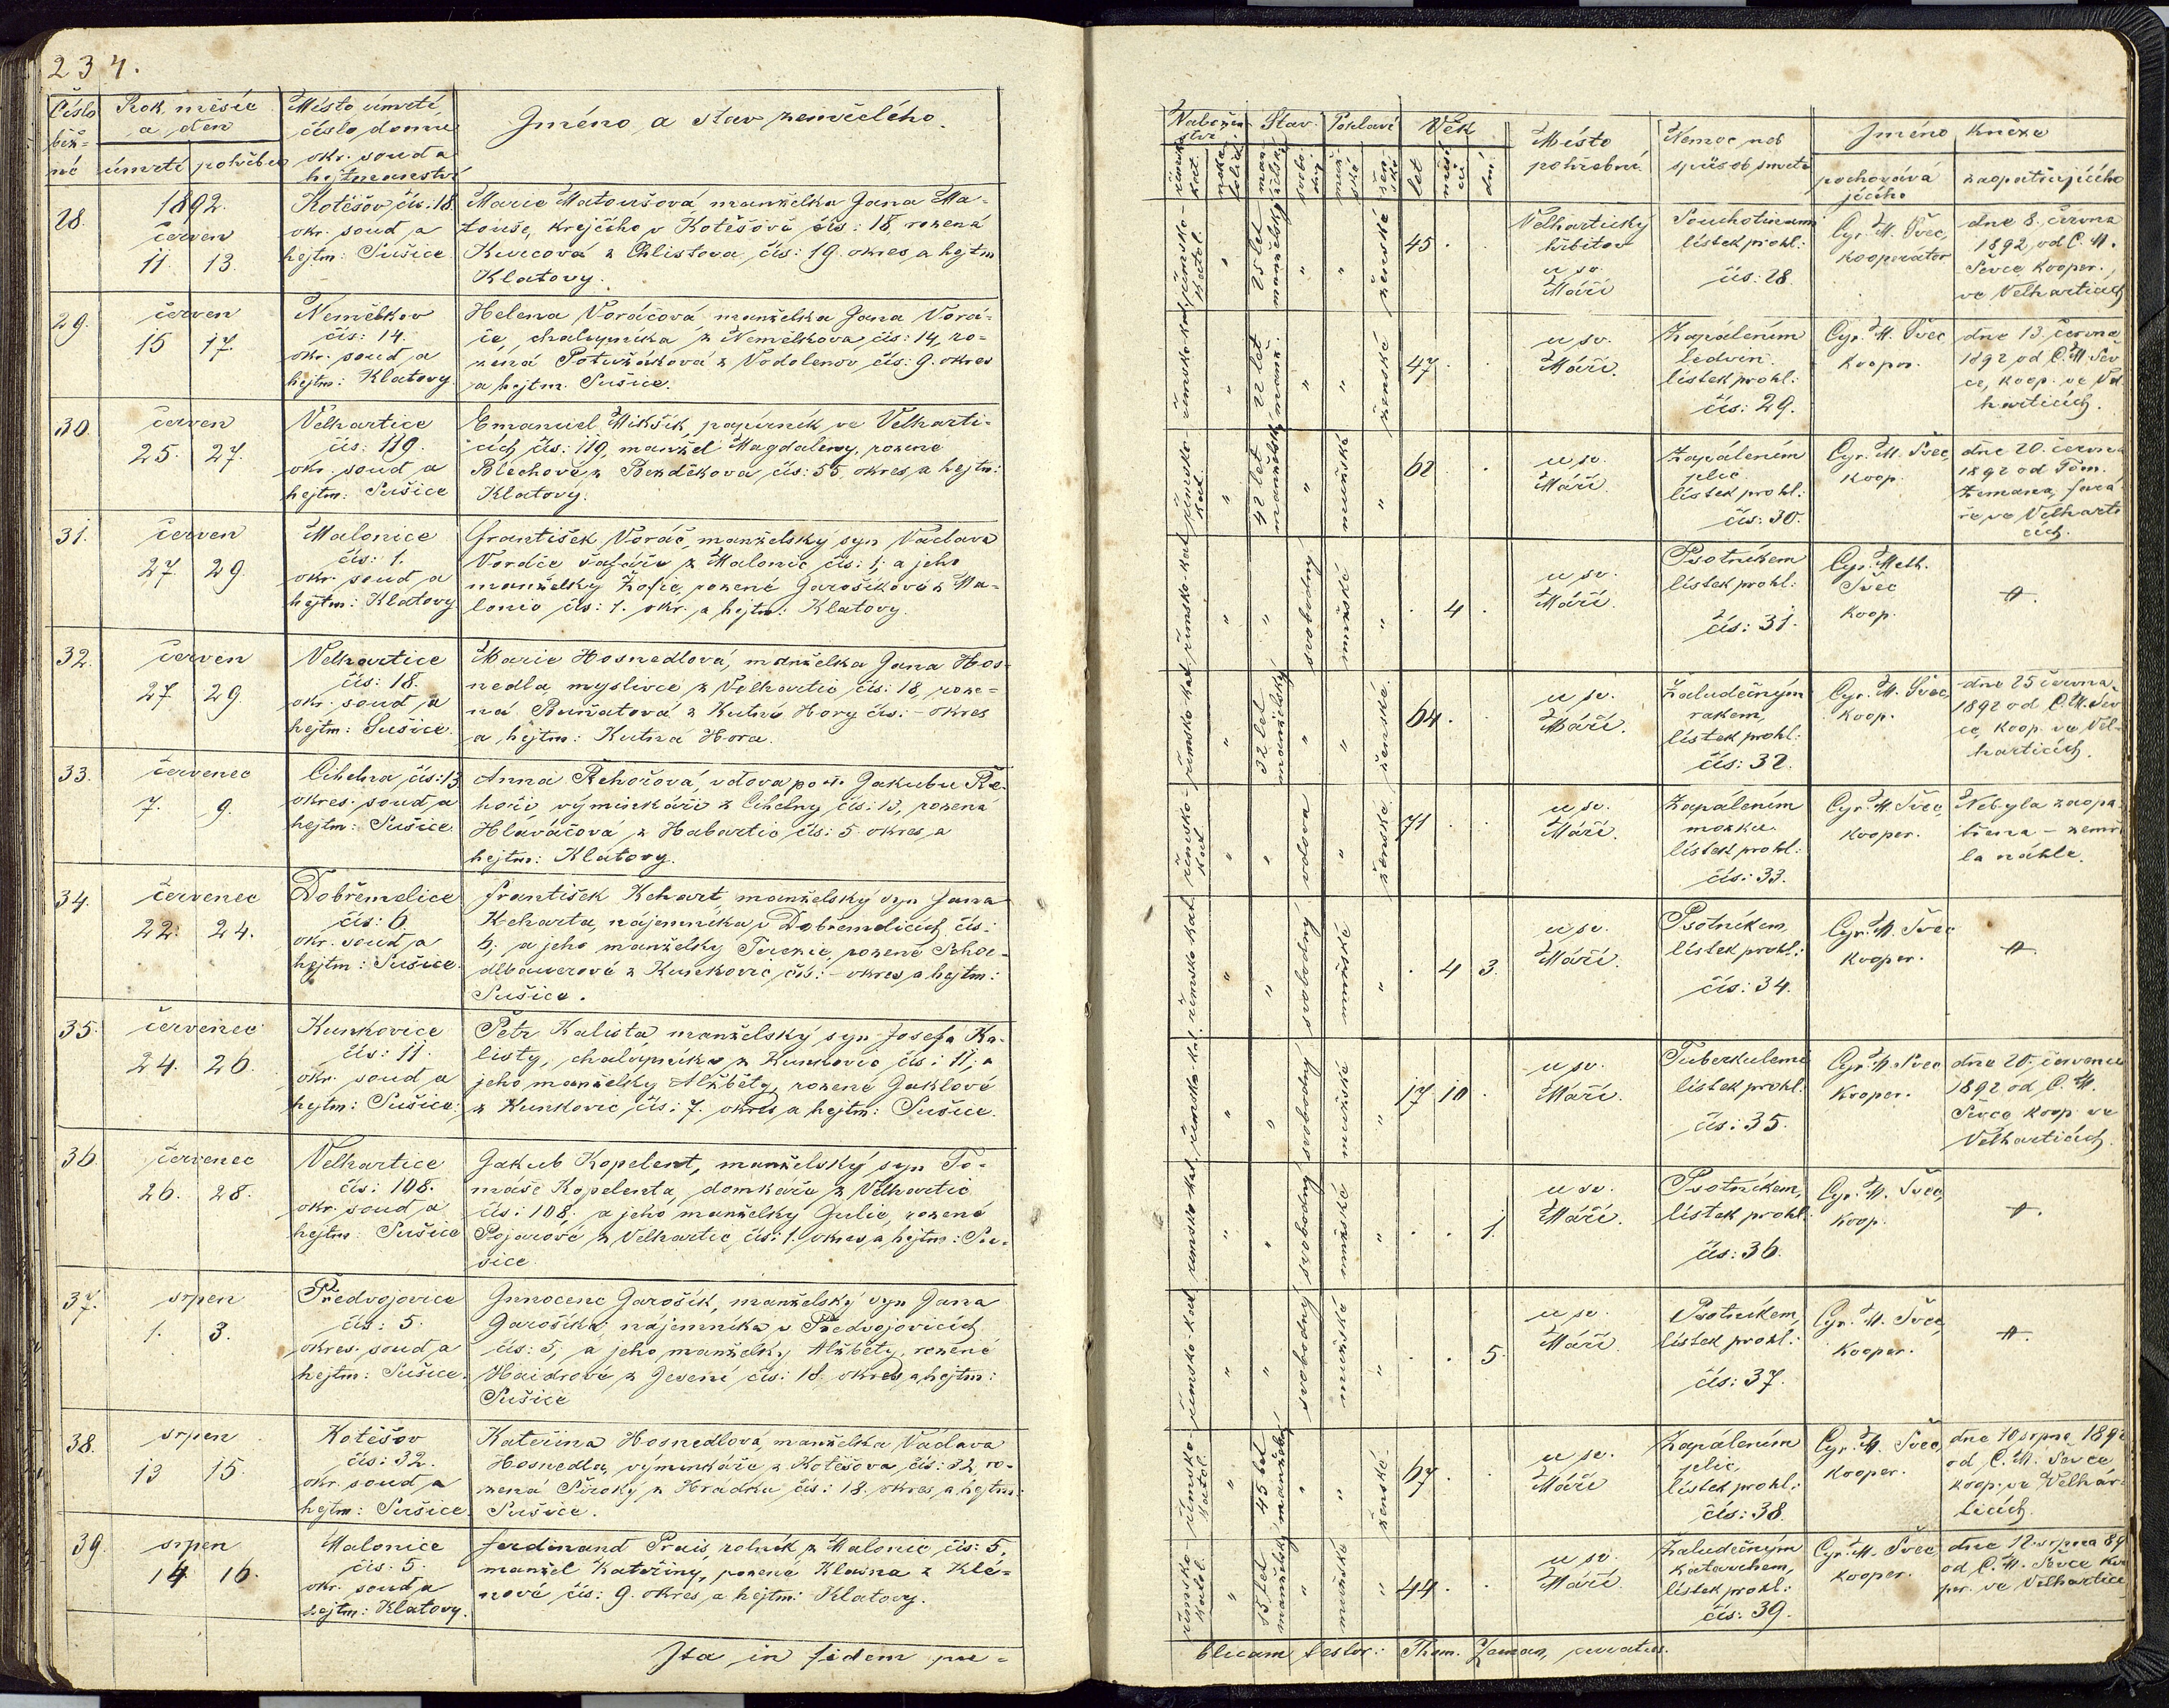 234.
Číslo běž= né
Rok, měsíc a den
úmrtí pohřbu
Místo úmrtí číslo domu okr. soud a hejtmanství
Jméno a stav zemřelého.
Nábožen ství.
římsko kat.
nekatolické
Stav.
manželský
svobodný
Pohlaví
mužské
ženské
Věk
let
měsíců
dní
Místo pohřební
Nemoc neb způsob smrti
Jméno kněze
pochovávajícího
zaopatřujícího
28.
1892.
červen
11. 13.
Kotěšov čís: 18.
okr. soud a
hejtm: Sušice
Marie Matoušová manželka Jana Ma-
touše, krejčího v Kotěšově čís: 18, rozená
Kurcová z Chlistova, čís: 19. okres a hejtm
Klatovy.
římsko- katol.
"
25 let manželský
"
"
ženské
45 . .
Velhartický
hřbitov
u sv.
Máří
Souchotinami
lístek prohl:
čís: 28.
Cyr. M. Švec,
kooperátor
dne 8. června
1892, od C. M.
Ševce, kooper.,
ve Velharticích
29.
červen
15 17.
Nemělkov
čís: 14.
okr. soud a
hejtm: Klatovy.
Helena Voráčová manželka Jana Vorá-
če, chalupníka z Nemělkova čís: 14, ro-
zená Potužáková z Vodolenov čís: 9. okres
a hejtm. Sušice.
římsko-kat.
"
22 let manž.
"
"
ženské
47 . .
u sv.
Máří.
Zapálením
ledvin.
lístek prohl:
čís: 29.
Cyr. M. Švec
koopr.
dne 13. června
1892 od C. M. Šev
ce, koop. ve Vel
harticích.
30.
červen
25. 27.
Velhartice
čís: 119.
okr. soud a
hejtm: Sušice
Emanuel Mikšík, papírník ve Velharti-
cích čís: 119, manžel Magdaleny, rozené
Blechové, z Bezděkova čís: 55, okres a hejtm:
Klatovy.
římsko- kat.
"
42 let manželský
"
mužské
"
62 .
u sv.
Máří.
Zapálením
plic
lístek prohl:
čís: 30.
Cyr. M. Švec,
koop.
dne 20. června
1892 od Tom.
Zemana, fará
ře ve Velharti
cích.
31.
červen
27. 29.
Malonice
čís: 1.
okr. soud a
hejtm: Klatovy
František Voráč, manželský syn Václava
Voráče šafáře z Malonic čís: 1; a jeho
manželky Žofie, rozené Jarošíkové z Ma-
lonic čís: 1. okr. a hejtm: Klatovy.
římsko-kat.
"
"
svobodný
mužské
"
. 4 .
u sv.
Máří.
Psotníkem
lístek prohl:
čís: 31.
Cyr. Meth.
Švec
koop.
32.
červen
27. 29
Velhartice
čís: 18.
okr. soud a
hejtm: Sušice.
Marie Hosnedlová, manželka Jana Hos-
nedla, myslivce z Velhartic čís: 18, roze-
ná Bunzatová z Kutné Hory čís: – okres
a hejtm: Kutná Hora.
římsko-kat.
"
32 let manželský
"
"
ženské
64. .
u sv.
Máří.
Žaludečným
rakem,
lístek prohl:
čís: 32.
Cyr. M. Švec,
koop.
dne 25 června
1892 od C. M. Šev
ce, koop. ve Vel-
harticích.
33.
červenec
7. 9.
Cihelna čís: 13
okres. soud a
hejtm: Sušice.
Anna Řehořová, vdova po + Jakubu Ře-
hoři, výminkáři z Cihelny čís: 13, rozená
Hlaváčová, z Habartic, čís: 5. okres, a
hejtm: Klatovy.
římsko- kat.
"
"
vdova
"
ženské
71 . .
u sv.
Máří.
Zapálením
mozku
lístek prohl:
čís: 33.
Cyr. M. Švec,
kooper.
Nebyla zaopa
třena – zemř
la náhle.
34.
červenec
22. 24.
Dobřemělice
čís: 6.
okr. soud a
hejtm: Sušice.
František Kehart, manželský syn Jana
Keharta, nájemníka v Dobřemělicích, čís:
6; a jeho manželky Terezie, rozené Schoe-
dlbauerové z Kunkovic, čís: – okres a hejtm:
Sušice.
římsko-kat.
"
"
svobodný
mužské
"
. 4 3.
u sv.
Máří.
Psotníkem,
lístek prohl:
čís: 34.
Cyr. M. Švec
kooper.
35.
červenec
24. 26.
Kunkovice
čís: 11.
okr. soud a
hejtm: Sušice.
Petr Kalista, manželský syn Josefa Ka-
listy, chalupníka z Kunkovic čís: 11; a
jeho manželky Alžběty, rozené Jaklové
z Kunkovic čís: 7. okres a hejtm: Sušice.
římsko-kat.
"
"
svobodný
mužské
"
17 10 .
u sv.
Máří.
lístek prohl:
čís: 35.
Cyr. M. Švec
kooper.
dne 20. července
1892 od C. M.
Ševce koop ve
Velharticích.
36
červenec
26. 28.
Velhartice
čís: 108.
okr. soud a
hejtm: Sušice
Jakub Kopelent, manželský syn To-
máše Kopelenta, domkáře z Velhartic
čís: 108; a jeho manželky Julie, rozené
Pojarové z Velhartic, čís: 1. okres a hejtm: Su-
šice.
římsko-kat.
"
"
svobodný
mužské
"
. . 1.
u sv.
Máří.
Psotníkem,
lístek prohl:
čís: 36.
Cyr. M. Švec,
koop.
37.
srpen
1. 3.
Předvojovice
čís: 5.
okres. soud a
hejtm: Sušice.
Innocenc Jarošík, manželský syn Jana
Jarošíka, nájemníka v Předvojovicích
čís: 5; a jeho manželky Alžběty, rozené
Haidrové z Jesení čís: 18, okres a hejtm:
Sušice
římsko-kat
"
"
svobodný
mužské
"
. . 5.
u sv.
Máří.
Psotníkem,
lístek prohl:
čís: 37.
Cyr. M. Švec,
kooper.
38.
srpen
13 15.
Kotěšov
čís: 32.
okr. soud a
hejtm: Sušice.
Kateřina Hosnedlová, manželka Václava
Hosnedla, výminkáře z Kotěšova, čís: 32, ro-
zená Široký z Hrádku čís: 18. okres a hejtm:
Sušice.
římsko- katol.
"
45 let manželský
"
"
ženské
67. .
u sv.
Máří
Zapálením
plic,
lístek prohl:
čís: 38.
Cyr. M. Švec,
kooper.
dne 10 srpna 1892
od C. M. Ševce
koop. ve Velhar-
ticích.
39.
srpen
14 16.
Malonice
čís: 5.
okr. soud a
hejtm: Klatovy.
Ferdinand Prais, rolník z Malonic čís: 5.
manžel Kateřiny, rozené Klasna z Klé-
nové čís: 9. okres a hejtm: Klatovy.
římsko- katol.
"
15 let manželský
"
mužské
"
44. .
u sv.
Máří.
Žaludečným
katarrhem,
lístek prohl:
čís: 39.
Cyr. M. Švec,
kooper.
dne 12. srpna 89
od C. M. Ševce koo
per. ve Velhartice
Ita in fidem pu=
blicam testor: Thom. Zeman, curatus.